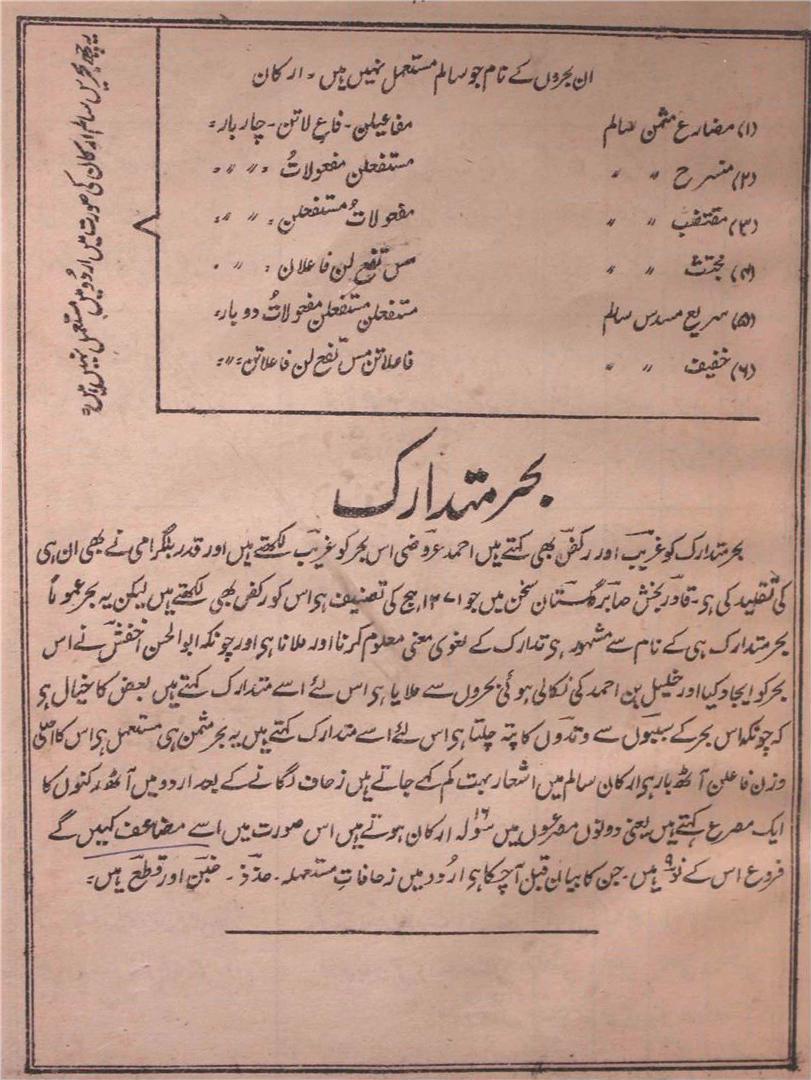 ان بحروں کے نام جو سالم مستعمل نہیں ہیں ۔ ارکان
(۱) مضارع مثمن سالم مفاعیلن ۔ فاع لاتن ۔ چار بار ۔
(۲) منسرح 〃 〃 مستفعلن مفعولاتُ ۔ 〃 〃 ۔
(۳) مقتضب 〃 〃 مفعولاتُ مستفعلن ۔ 〃 〃 ۔
(۴) مجتث 〃 〃 مس تفع لن فاعلاتن ۔ 〃 ۔
(۵) سریع مسدس سالم مستفعلن مستفعلن مفعولاتُ دو بار ۔
(۶) خفیف 〃 〃 فاعلاتن مس تفع لن فاعلاتن ۔ 〃 ۔
یہ چھ بحریں سالم ارکان کی صورت میں اردو میں مستعمل نہیں ہیں ۔
بحر متدارک
بحر متدارک کو غریب اور رکض بھی کہتے ہیں احمد عروضی اس بحر کو غریب لکھتے ہیں اور قدر بلگرامی نے بھی ان ہی
کی تقلید کی ہی ۔ قادر بخش صابر گلستان سخن میں جو ۱۲۷۱ ہج کی تصنیف ہی اس کو رکض بھی لکھتے ہیں لیکن یہ بحر عموماً
بحر متدارک ہی کے نام سے مشہور ہی تدارک کے لغوی معنی معلوم کرنا اور ملانا ہی اور چونکہ ابو الحسن اخفش نے اس
بحر کو ایجاد کیا اور خلیل بن احمد کی نکالی ہوئی بحروں سے ملایا ہی اس لئے اسے متدارک کہتے ہیں بعض کا خیال ہی
کہ چونکہ اس بحر کے سببوں سے وتدوں کا پتہ چلتا ہی اس لئے اسے متدارک کہتے ہیں یہ بحر مثمن ہی مستعمل ہی اس کا اصلی
وزن فاعلن آٹھ بار ہی ارکان سالم میں اشعار بہت کم کہے جاتے ہیں زحاف لگانے کے بعد اردو میں آٹھ رکنوں کا
ایک مصرع کہتے ہیں یعنی دونوں مصرعوں میں سولہ ۱۶ ارکان ہوتے ہیں اس صورت میں اسے مضاعف کہیں گے
فروع اس کے نو ۹ ہیں ۔ جن کا بیان قبل آچکا ہی اردو میں زحافاتِ مستعملہ ۔ حذذ ۔ خبن اور قطع ہیں ۔